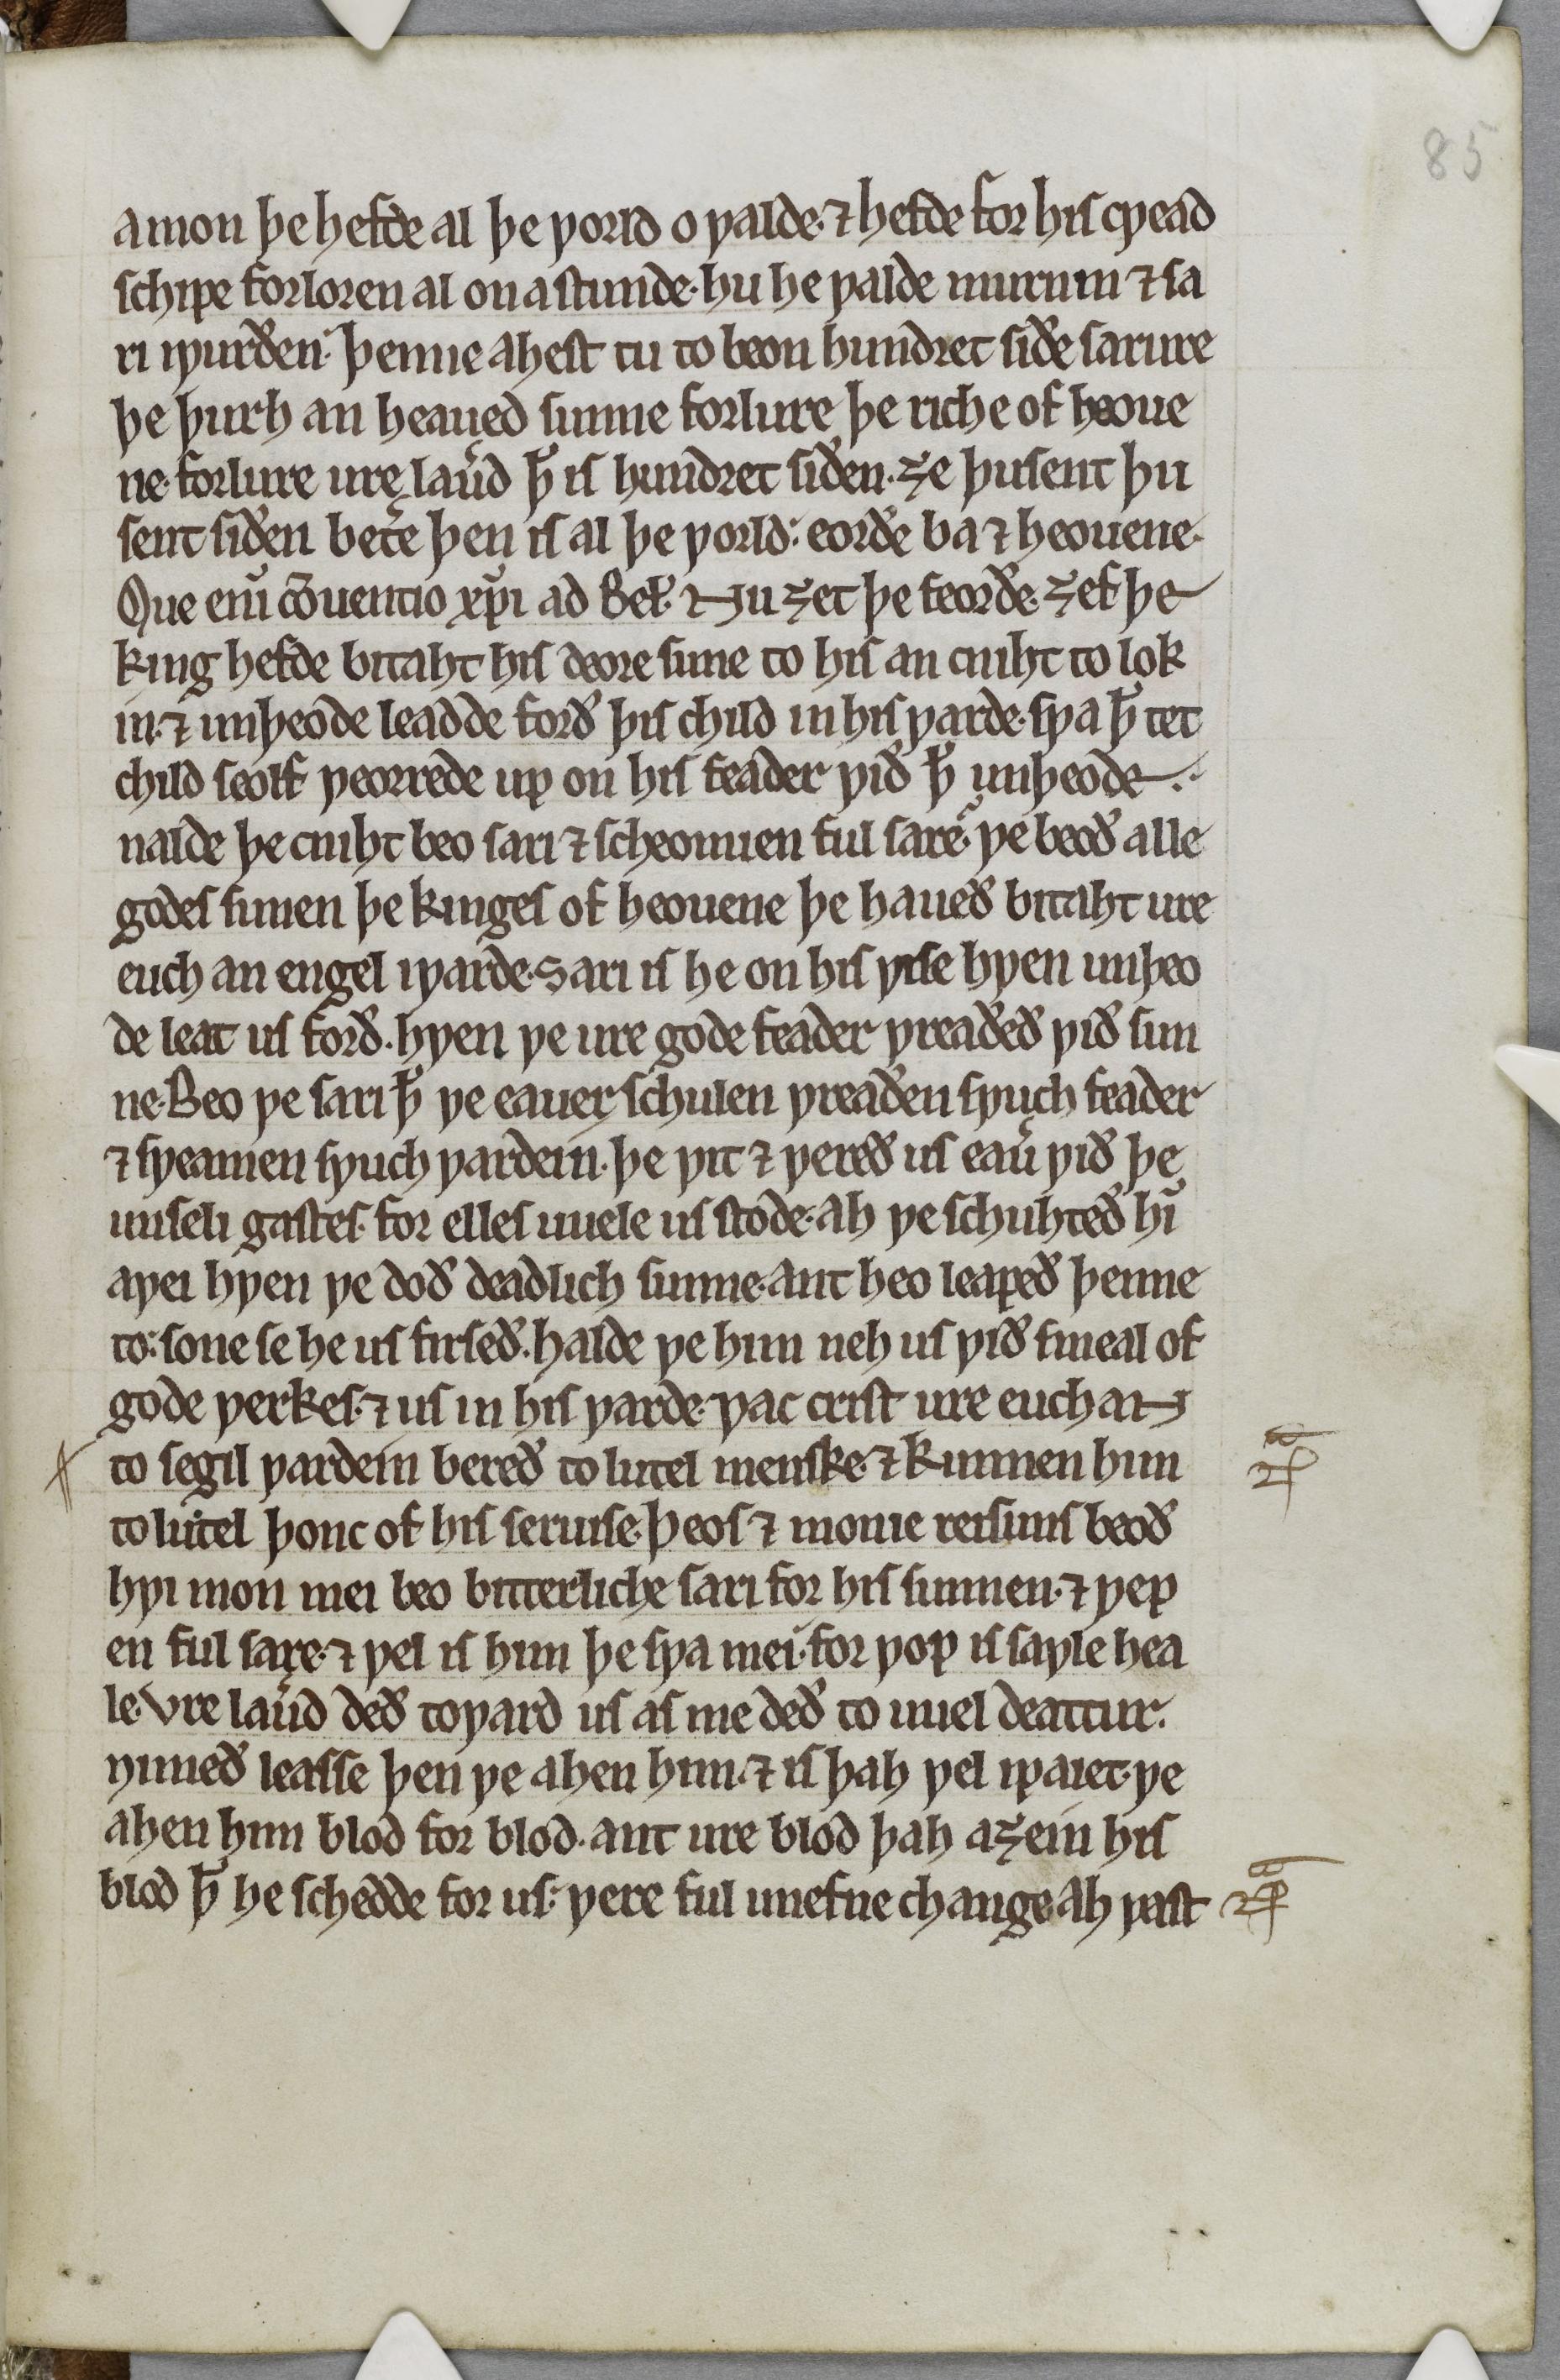 85
a mon þe hefde al þe ƿorld o ƿalde· ⁊ hefde for his cƿead
schipe forloren al on a stunde· hu he ƿalde murnin ⁊ sa
ri iƿurðen· þenne ahest tu to beon hundret siðe sarure
þe þurh an heaued sunne forlure þe riche of heoue
ne· forlure ure lau̾d ꝥ is hundret siðen· ȝe þusent þu
sent siðen bet̾e þen is al þe ƿorld· eorðe ba ⁊ heouene·
Que eni̅ co̅uentio xp̅i ad Bel̾· Nu ȝet þe feorðe· ȝef þe
king hefde bitaht his deore sune to his an cniht to lok
in· ⁊ unþeode leadde forð þis child in his ƿarde· sƿa ꝥ tet
child seolf ƿeorrede up on his feader ƿið ꝥ unþeode·
nalde þe cniht beo sari ⁊ scheomien ful sare· ƿe beoð alle
godes sunen þe kinges of heouene þe haueð bitaht ure
euch an engel iƿarde· Sari is he on his ƿise hƿen unþeo
de leat us forð· hƿen ƿe ure gode feader ƿreaðeð ƿið sun
ne· Beo ƿe sari ꝥ ƿe eauer schulen ƿreaðen sƿuch feader
⁊ sƿeamen sƿuch ƿardein· þe ƿit ⁊ ƿereð us eau̾ ƿið þe
unseli gastes· for elles uuele us stode· ah ƿe schuhteð hi̅
aƿei hƿen ƿe doð deadlich sunne· ant heo leapeð þenne
to· sone se he us firseð· halde ƿe him neh us ƿið smeal of
gode ƿerkes· ⁊ us in his ƿarde· ƿac crist ure euch an
to segil ƿardein bereð to lutel menske· ⁊ kunnen him
to lutel þonc of his seruise· þeos ⁊ monie reisuns beoð
hƿi mon mei beo bitterliche sari for his sunnen· ⁊ ƿep
en ful sare· ⁊ ƿel is him þe sƿa mei· for ƿop is saƿle hea
le· Vre lau̾d deð toƿard us as me deð to uuel deattur·
nimeð leasse þen ƿe ahen him· ⁊ is þah ƿel ipaiet· ƿe
ahen him blod for blod· ant ure blod þah aȝein his
blod ꝥ he schedde for us· ƿere ful unefne change· Ah ƿast